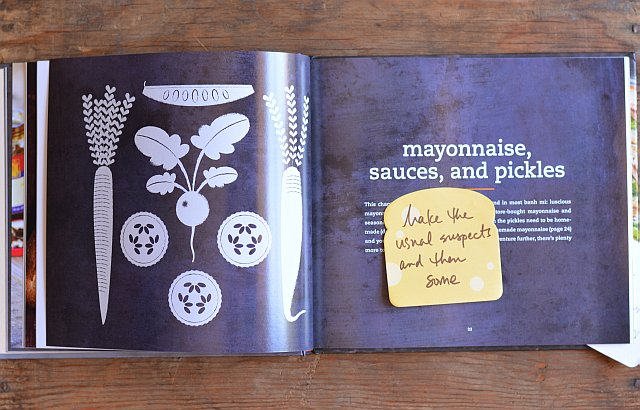 mayonnaise,
sauces, and pickles
This cha
nd in most banh mi: luscious
mayonn
tore-bought mayonnaise and
season
the pickles need to be home-
made (d
emade mayonnaise (page 24)
and yo
enture further, there's plenty
more to
Make the
usual suspects
and then
some